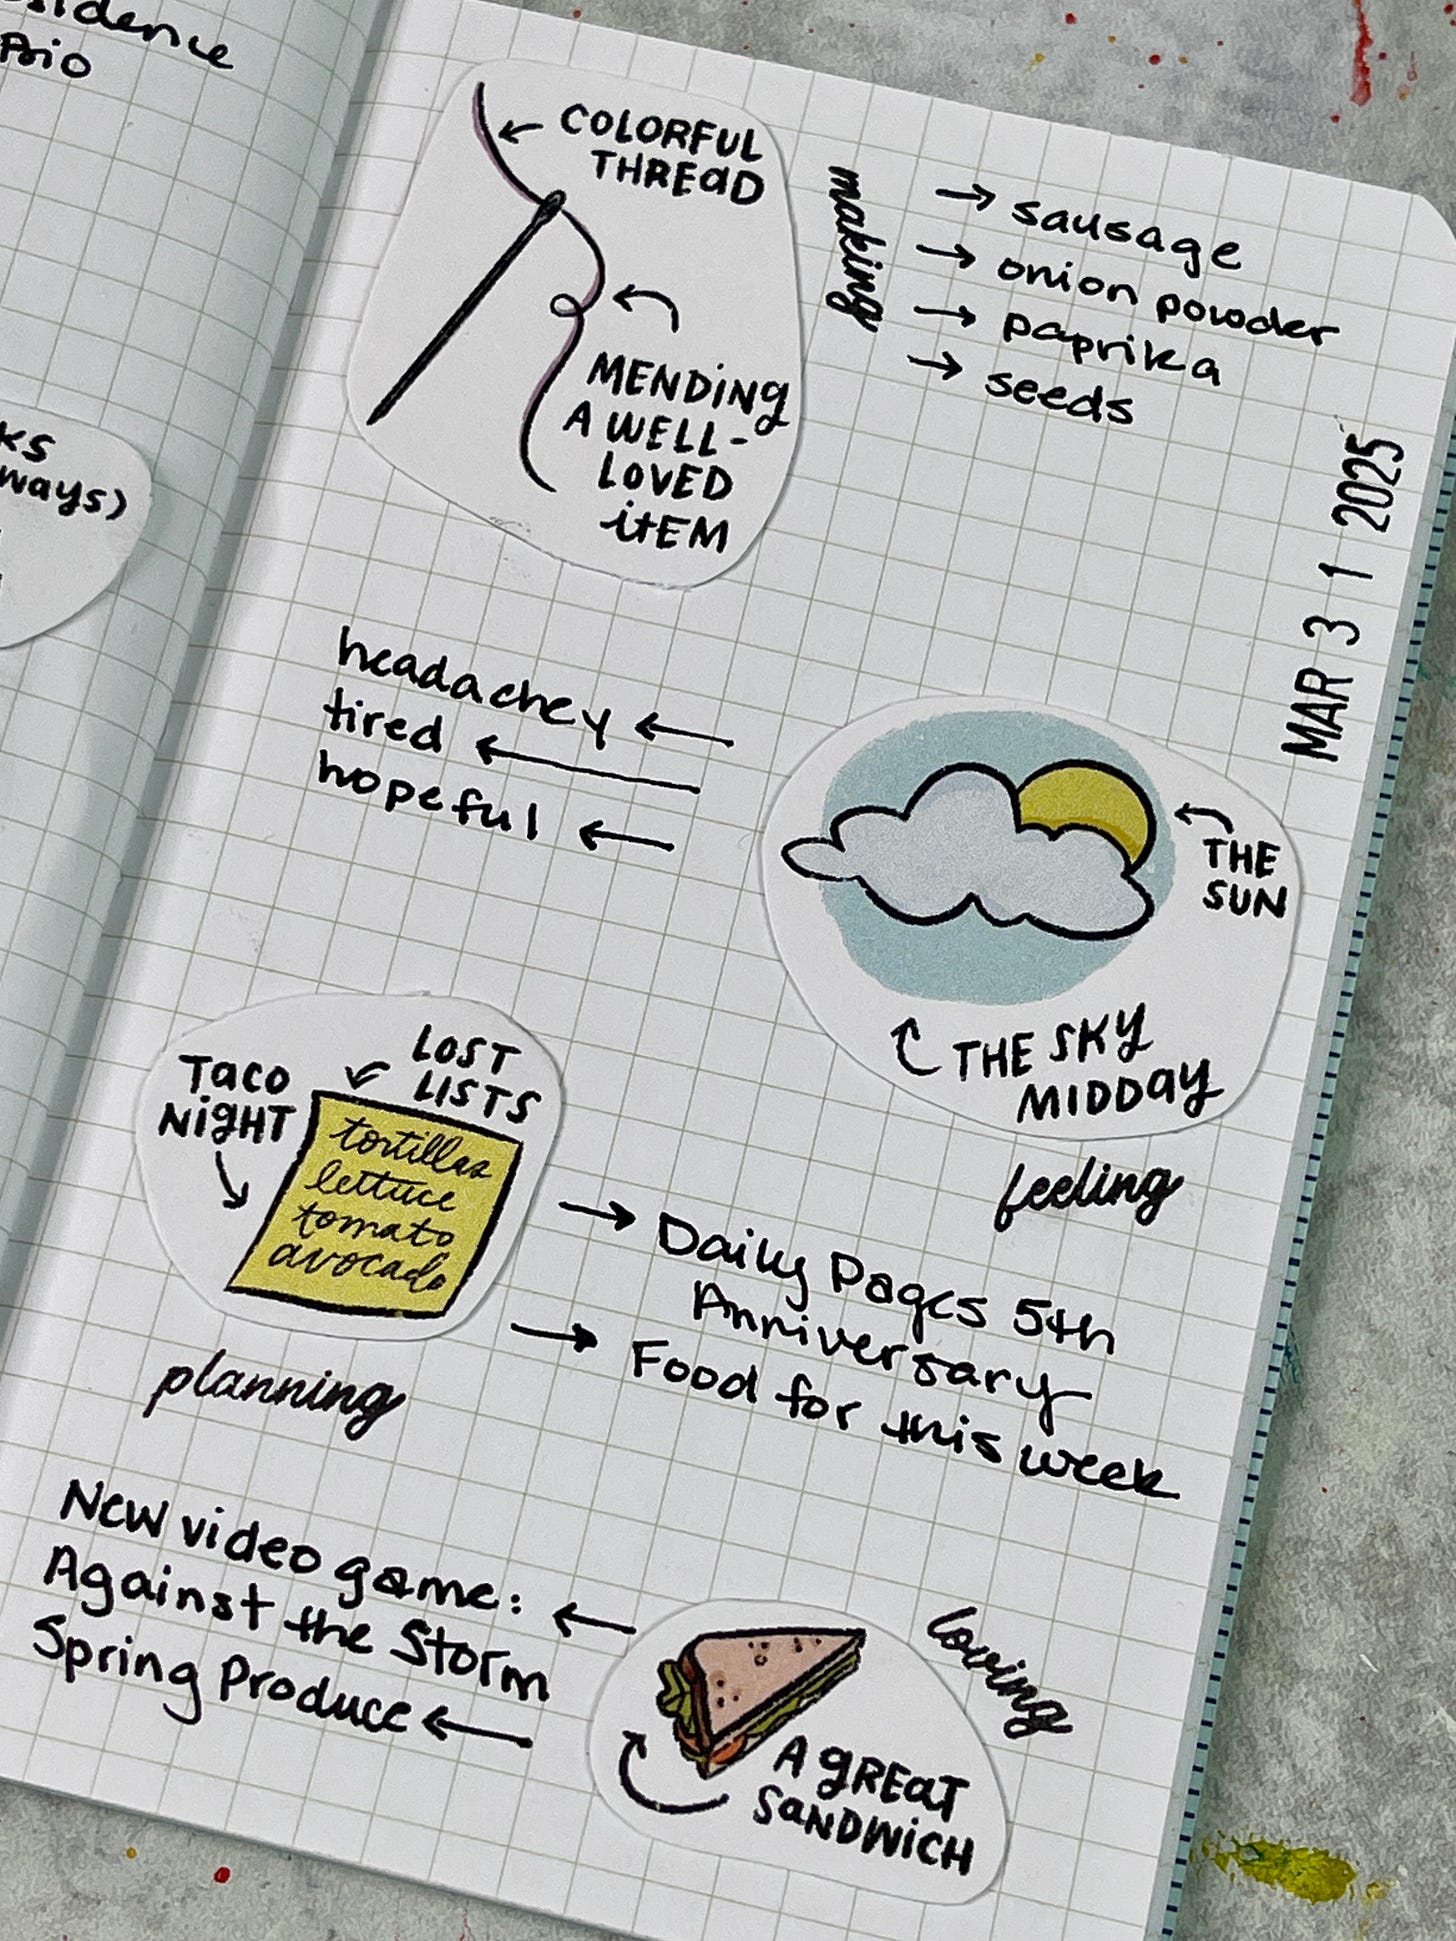 Bio
ways)
COLORFUL
THREAD
MENDING
A WELL-
LOVED
itEM
making
→ sausage
→ onion powder
→ paprika
→ seeds
MAR 3 1 2025
headachey ←
tired ←
hopeful ←
THE
SUN
THE SKY
MIDDAY
feeling
LOST
LISTS
TACO
NIGHT
tortillas
lettuce
tomato
avocado
planning
→ Daily Pages 5th
Anniversary
→ Food for this week
New video game: ←
Against the Storm
Spring Produce ←
loving
A GREAT
SANDWICH